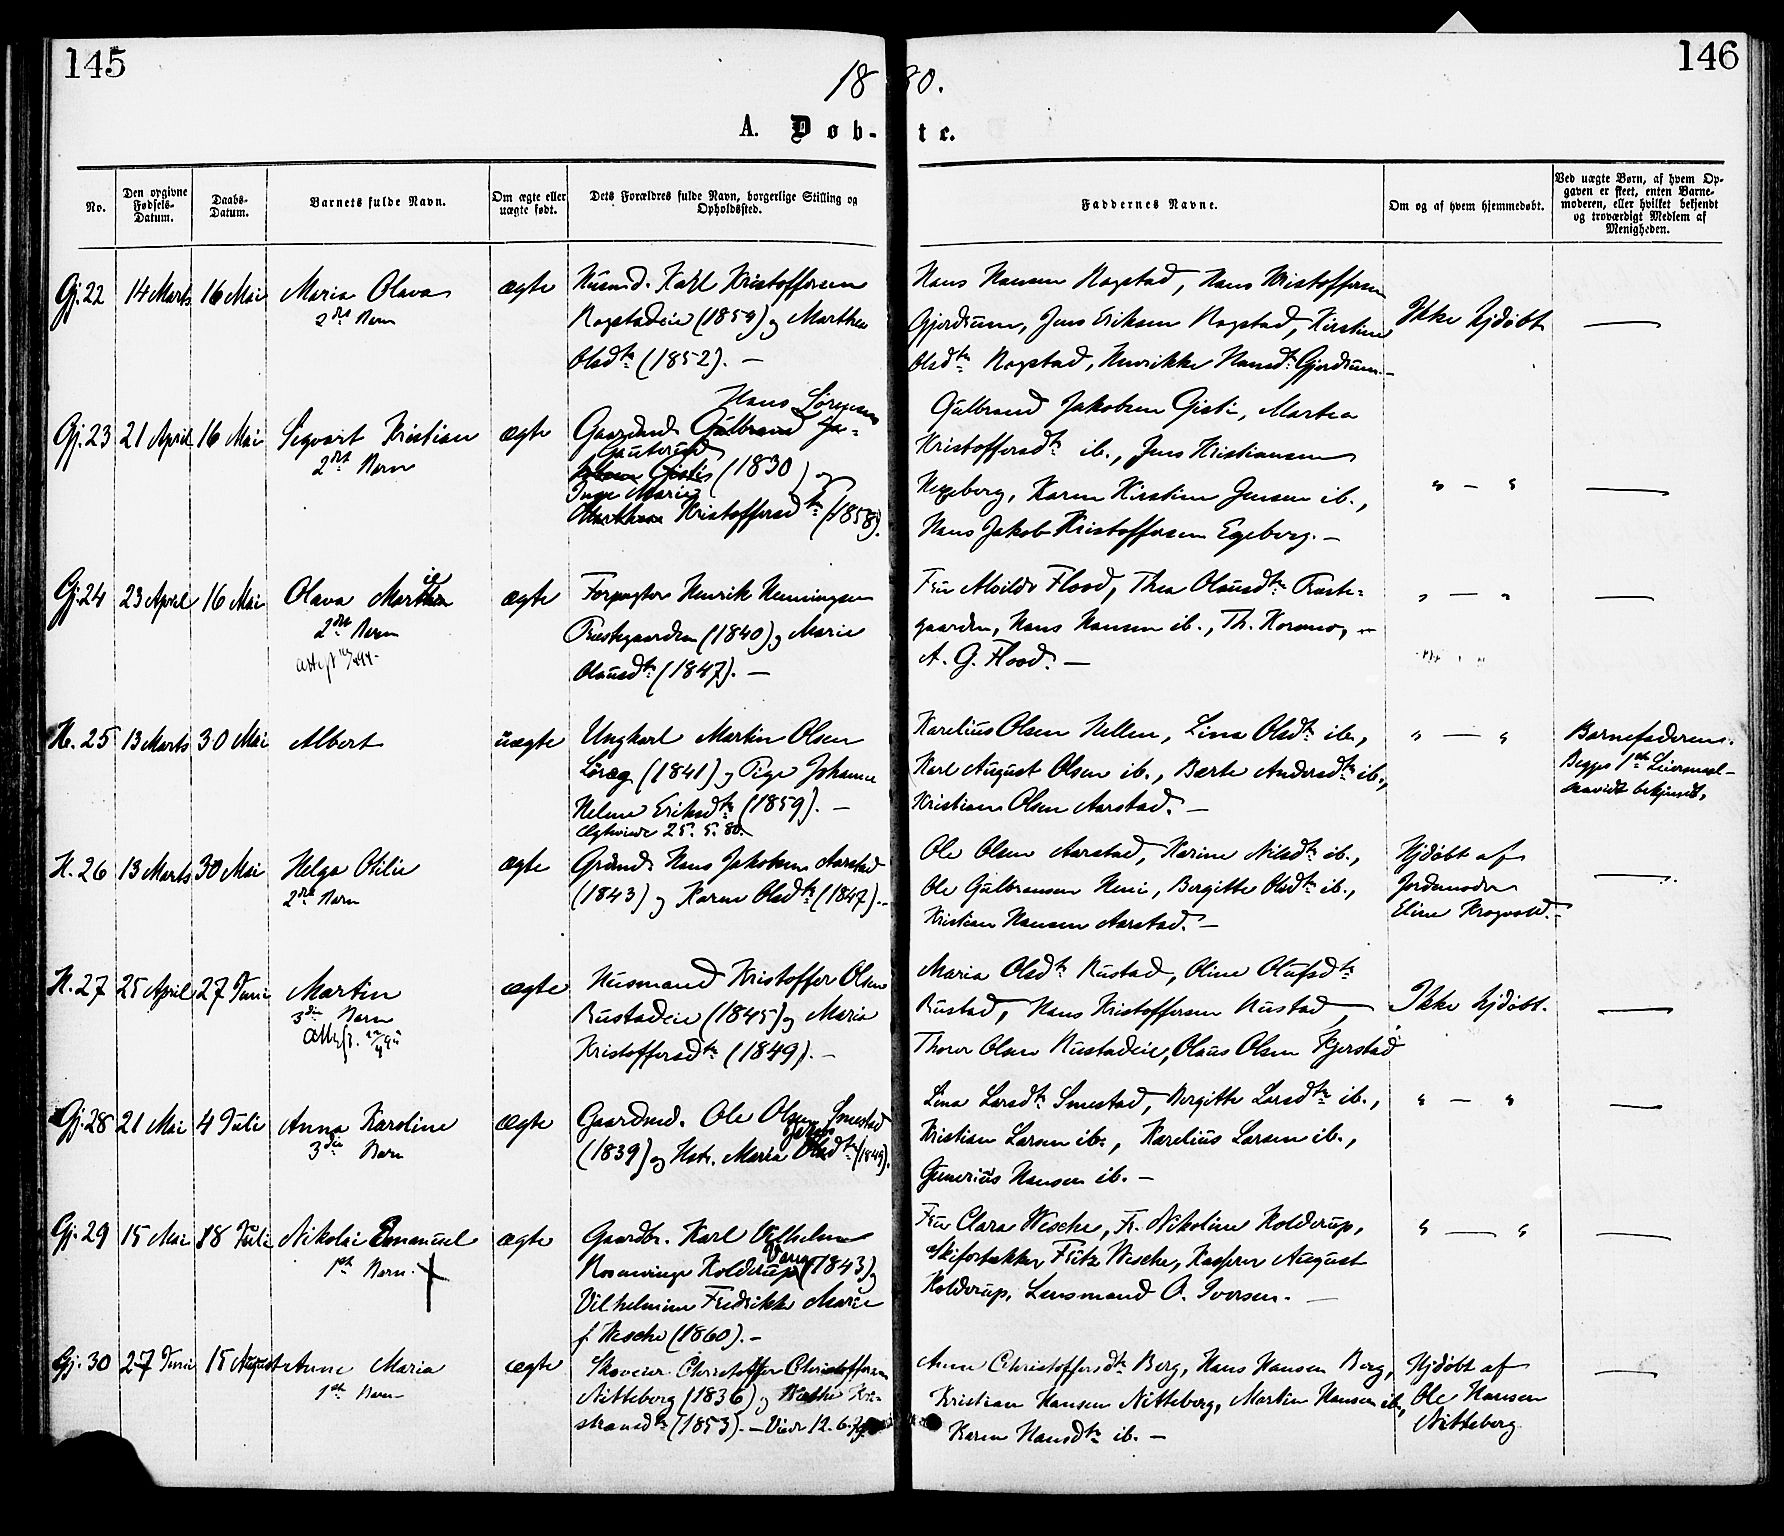 145
146
1880.
A. Døbte.
No.
Den opgivne Fødsels-Datum.
Daabs-Datum.
Barnets fulde Navn.
Om ægte eller uægte født.
Dets Forældres fulde Navn, borgerlige Stilling og Opholdssted.
Faddernes Navne.
Om og af hvem hjemmedøbt.
Ved uægte Børn, af hvem Opgaven er skeet, enten Barnemoderen, eller hvilket bekjendt og troværdigt Medlem af Menigheden.
Gj. 22 14 Marts 16 Mai Maria Olava ægte
2det Barn
Husmd. Karl Kristoffersen
Rogstadeie (1859) og Marthea
Olsdtr (1852). —
Hans Hansen Rogstad, Hans Kristoffersen
Gjerdrum, Jens Eriksen Rogstad, Kirstine
Olsdtr Rogstad, Henrikke Hansdtr Gjerdrum. —
Ikke hjdøbt —
Gj. 23 21 April 16 Mai Sigvart Kristian ægte
2det Barn
Hans Sörensen
Gaardmd. Gulbrand Ja-
Gauterud
kobsen Gisti (1830) og
Inge Marie
Marthea Kristoffersdtr (1858).
Gulbrand Jakobsen Gisti, Marthea
Kristoffersdtr ib., Jens Kristiansen
Hexeberg, Karen Kirstine Jensen ib.,
Hans Jakob Kristoffersen Egeberg. —
" — " —
Gj. 24 23 April 16 Mai Olava Marthea ægte
ie
2det Barn
Forpagter Henrik Henningsen
Præstegaarden (1840) og Marie
Olausdtr (1847). —
Fru Alvilde Flood, Thea Olausdtr Præste-
gaarden, Hans Hansen ib., Th. Horomo,
A. G. Flood. —
" — " —
H. 25 13 Marts 30 Mai Albert uægte
Ungkarl Martin Olsen
Löreg (1841) og Pige Johanne
Helene Eriksdtr (1859). —
Ægteviede 25. 5. 80.
Karelius Olsen Hellen, Lina Olsdtr ib.,
Karl August Olsen ib., Berte Andersdtr ib.,
Kristian Olsen Aarstad. —
" — "
Barnefaderen.
Begges 1ste Leiermaal
saavidt bekjendt.
H. 26 13 Marts 30 Mai Helga Otilie ægte
2det Barn
Grdmd. Hans Jakobsen Aarstad
(1843) og Karen Olsdtr (1847). —
Ole Olsen Aarstad, Karine Nilsdtr ib.,
Ole Gulbransen Heni, Bergitte Olsdtr ib.,
Kristian Hansen Aarstad. —
Hjdøbt af
Jordemoder
Eline Krogvold. —
H. 27 25 April 27 Juni Martin ægte
3die Barn
Husmand Kristoffer Olsen
Rustadeie (1845) og Maria
Kristoffersdtr (1849). —
Maria Olsdtr Rustad, Oline Olufsdtr
Rustad, Hans Kristoffersen Rustad,
Thorer Olsen Rustadeie, Olaus Olsen Kjerstad
Ikke hjdøbt. —
Gj. 28 21 Mai 4 Juli Anna Karoline ægte
3die Barn
Gaardmd. Ole Olsen Smestad
(1839) og Hstr. Maria Olsdtr (1849).
Lina Larsdtr Smestad, Bergitte Larsdtr ib.,
Kristian Larsen ib., Karelius Larsen ib.,
Gunerius Hansen ib. —
" — " —
Gj. 29 15 Mai 18 Juli Nikolai Emanuel ægte
1ste Barn. +
Gaardbr. Karl Vilhelm
Rosenvinge Kolderup (1843) og
Vilhelmine Fredrikke Marie
f. Wesche (1860). —
Fru Clara Wesche, Fr. Nikoline Kolderup,
Skiforstakker Fritz Wesche, Kasserer August
Kolderup, Lensmand O. Iversen. —
" — " —
Gj. 30 27 Juni 15 August Anne Maria ægte
1ste Barn
Skoveier Christoffer Christoffersen
Nitteberg (1836) og Kri-
stiansdtr (1853). — Viede 12. 6. 79
Anne Christoffersdtr Berg, Hans Hansen Berg,
Kristian Hansen Nitteberg, Martin Hansen ib.,
Karen Hansdtr ib. —
Hjdøbt af
Ole Hansen
Nitteberg
—